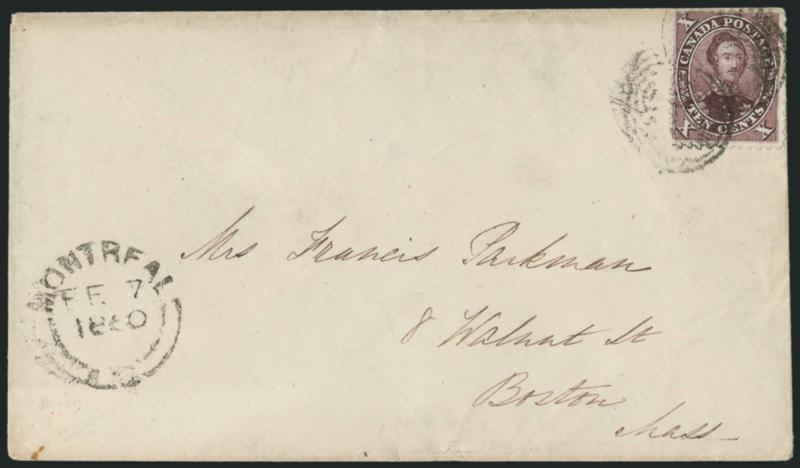 X
CANADA POSTAGE
TEN CENTS
X X
Mrs Francis Parkman
8 Walnut St
Boston
Mass
MONTREAL
FE 7
1860